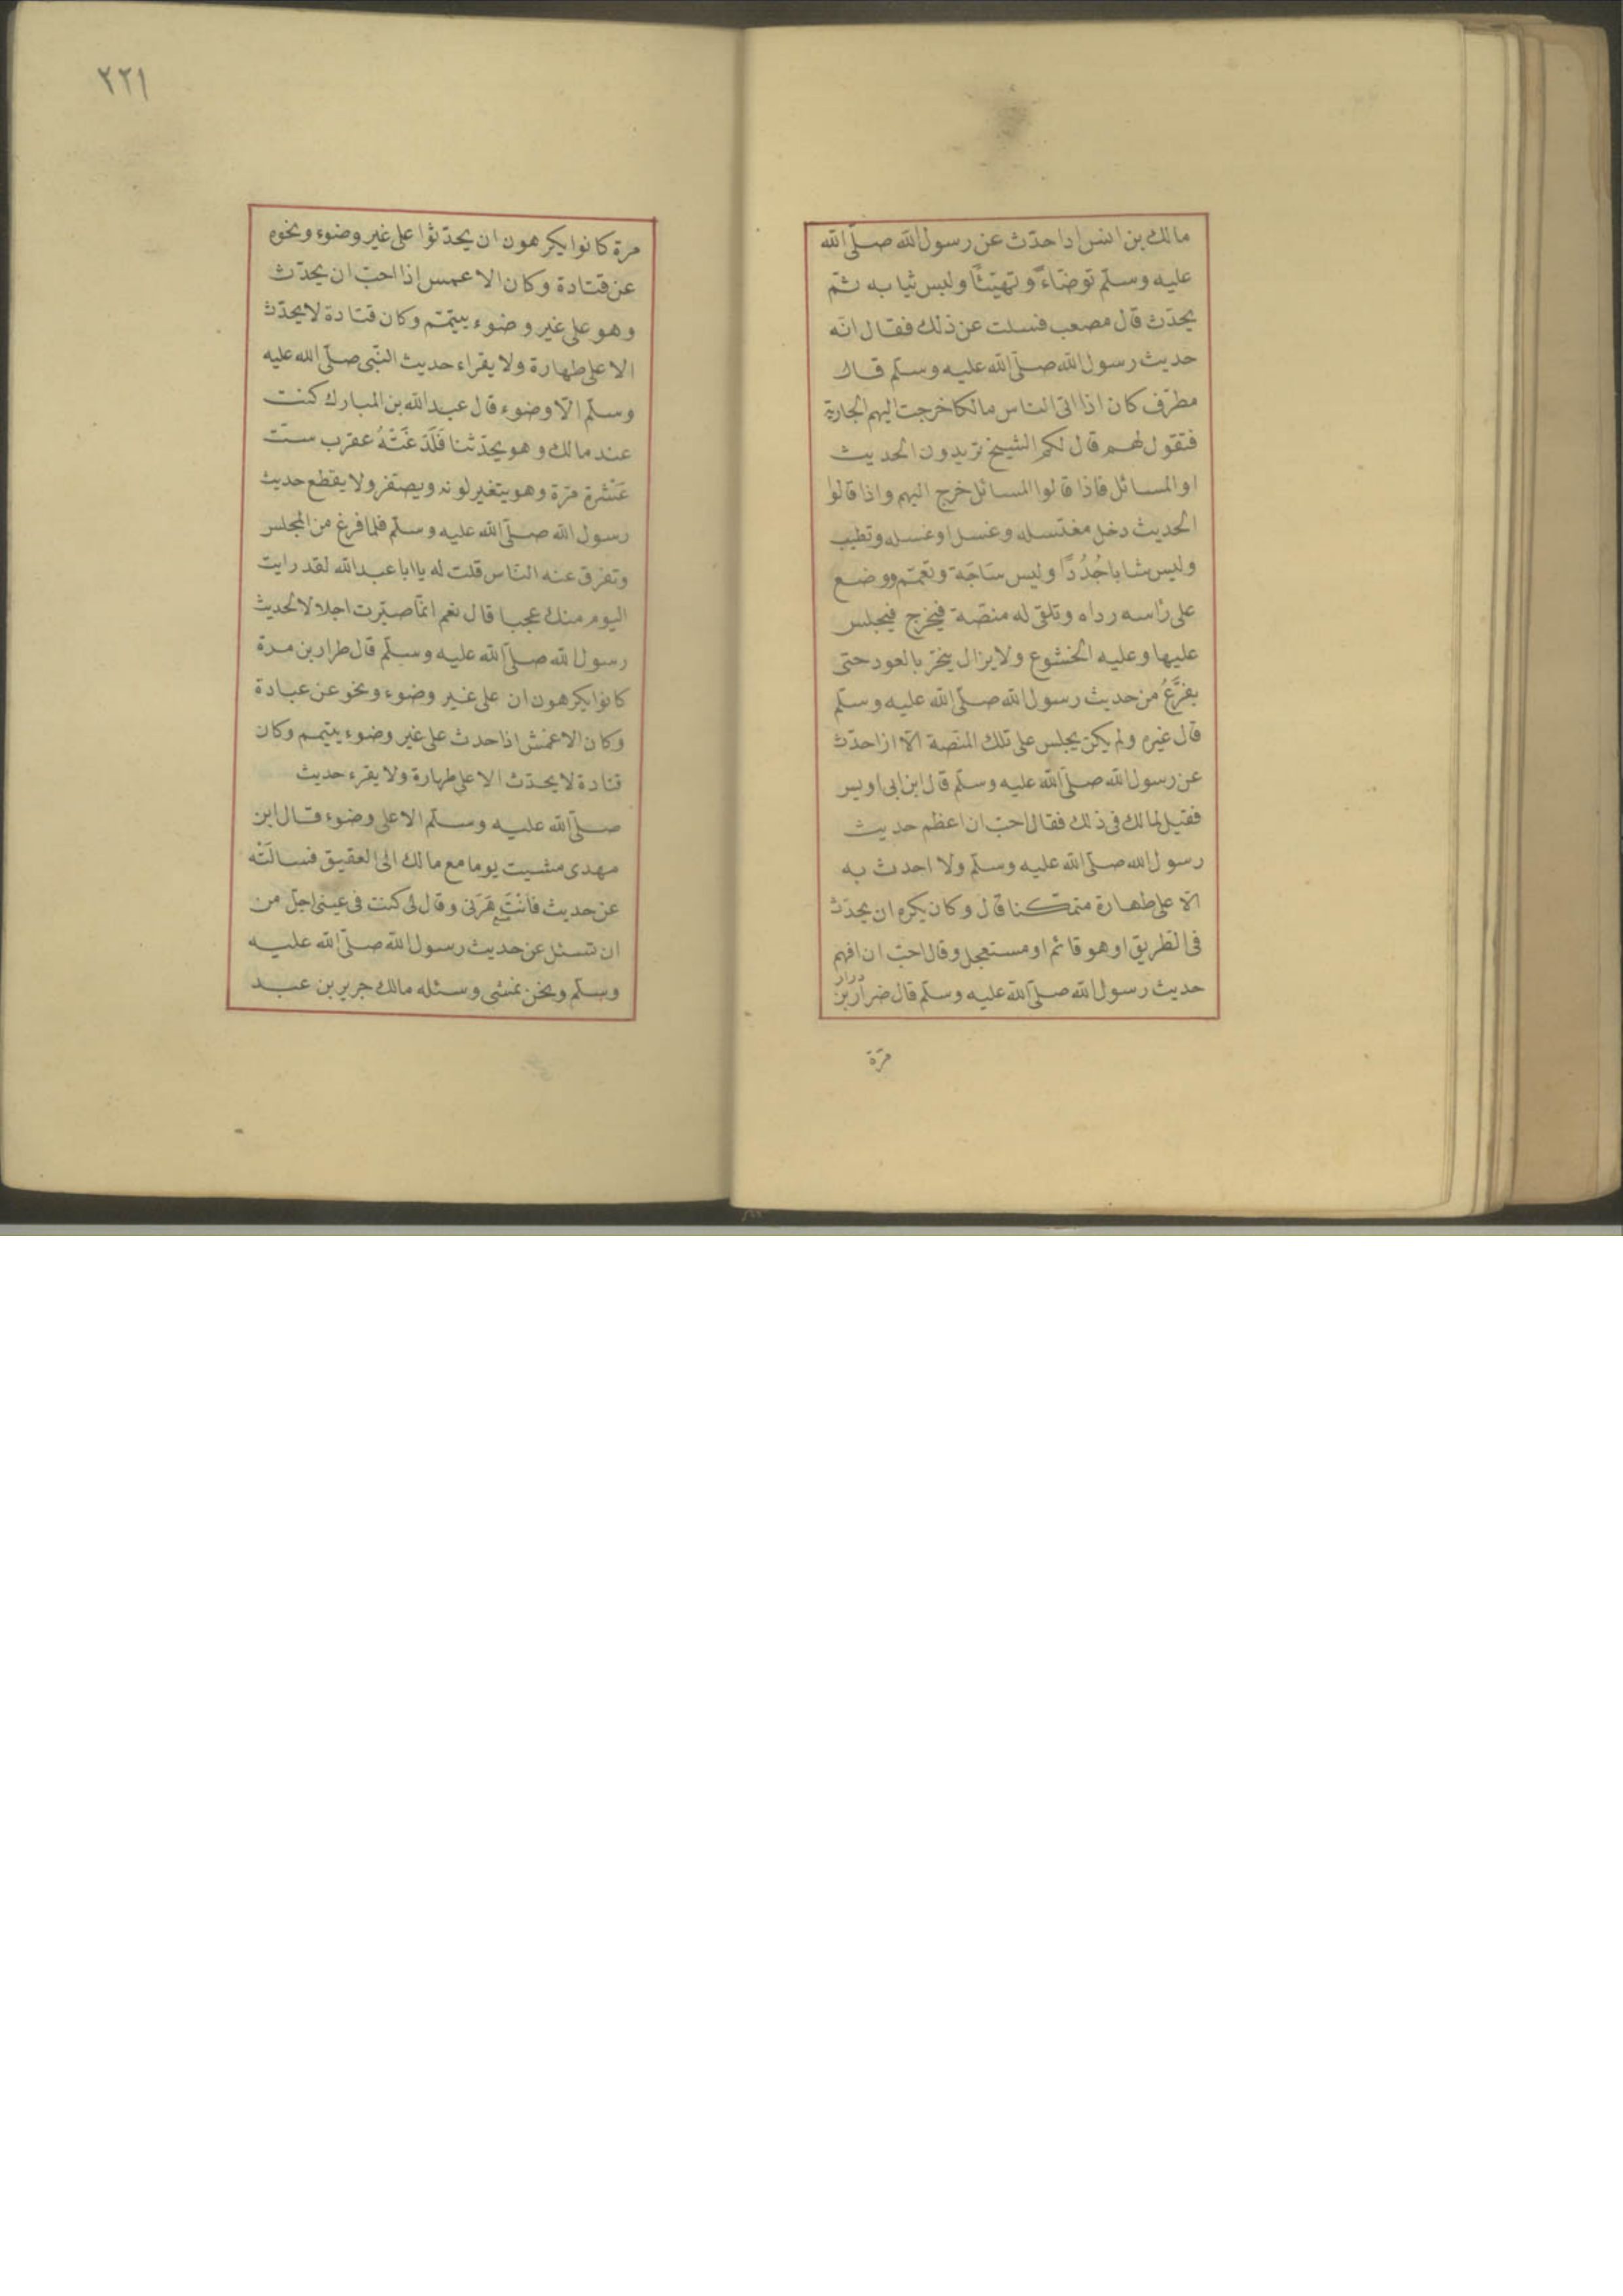 مالك بن انس اذا حدّث عن رسول الله صلّى الله
عليه وسلّم توضّاء وتهيّئا ولبس ثيابه ثمّ
يحدّث قال مصعب فسئلت عن ذلك فقال انّه
حديث رسول الله صلّى الله عليه وسلّم قال
مطرّف كان اذا اتى الناس مالكا خرجت اليهم الجارية
فتقول لهم قال لكم الشيخ تريدون الحديث
او المسائل فاذا قالوا المسائل خرج اليهم واذا قالوا
الحديث دخل مغتسله وغسل اوغسله وتطيب
ولبس شابا جُدُدًا ولبس سَاجَة وتعمّم ووضع
على رٔاسه رداه وتلقى له منصّة فيخرج فيجلس
عليها وعليه الخشوع ولا يزال يبخّر بالعود حتى
يفرَّغُ من حديث رسول الله صلّى الله عليه وسلّم
قال غيره ولم يكن يجلس على تلك المنصّة الّا اذا حدّث
عن رسول الله صلّى الله عليه وسلّم قال ابن ابى اويس
فقيل لمالك فى ذلك فقال احبّ ان اعظم حديث
رسول الله صلّى الله عليه وسلّم ولا احدث به
الّا على طهارة متمكّنا قال وكان يكره ان يحدّث
فى الطريق او هو قائم او مستعجل وقال احبّ ان افهم
حديث رسول الله صلّى الله عليه وسلّم قال ضرار بن
درار
مرّة
٢٢١
مرة كانوا يكرهون ان يحدّثوا على غير وضوء ونحوه
عن قتادة وكان الاعمس اذا احبّ ان يحدّث
وهو على غير وضوء يتيمّم وكان قتادة لا يحدّث
الا على طهارة ولا يقراء حديث النّبى صلّى الله عليه
وسلّم الّا وضوء قال عبد الله بن المبارك كنت
عند مالك وهو يحدّثنا فَلَدَغَتْهُ عقرب ستّ
عَشْرَة مرّة وهو يتغير لونه ويصتفر ولا يقطع حديث
رسول الله صلّى الله عليه وسلّم فلما فرغ من المجلس
وتفرق عنه النّاس قلت له يا ابا عبد الله لقد رايت
اليوم منك عجبا قال نعم انّما صبّرت اجلالا لحديث
رسول الله صلّى الله عليه وسلّم قال طرار بن مرة
كانوا يكرهون ان على غير وضوء ونحو عن عبادة
وكان الاعمش اذا حدث على غير وضوء يتيمم وكان
قتادة لا يحدّث الا على طهارة ولا يقرء حديث
صلّى الله عليه وسلّم الا على وضوء قال ابن
مهدى مشيت يوما مع مالك الى العقيق فسالَتْه
عن حديث فانْتَهَرَنى وقال لى كنت فى عينى اجلّ من
ان تسئل عن حديث رسول الله صلّى الله عليه
وسلّم ونحن نمشى وسئله مالك جرير بن عبد